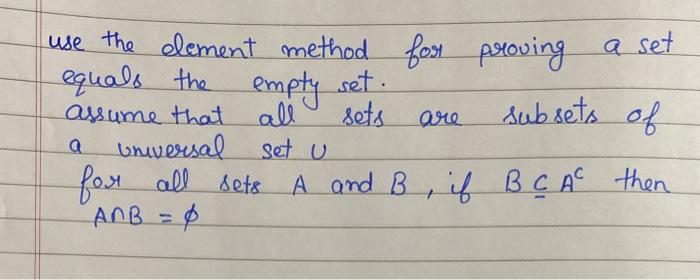 use the element method for proving a set
equals the empty set.
assume that all sets are subsets of
a universal set U
for all sets A and B, if B ⊆ Aᶜ then
A∩B = ϕ